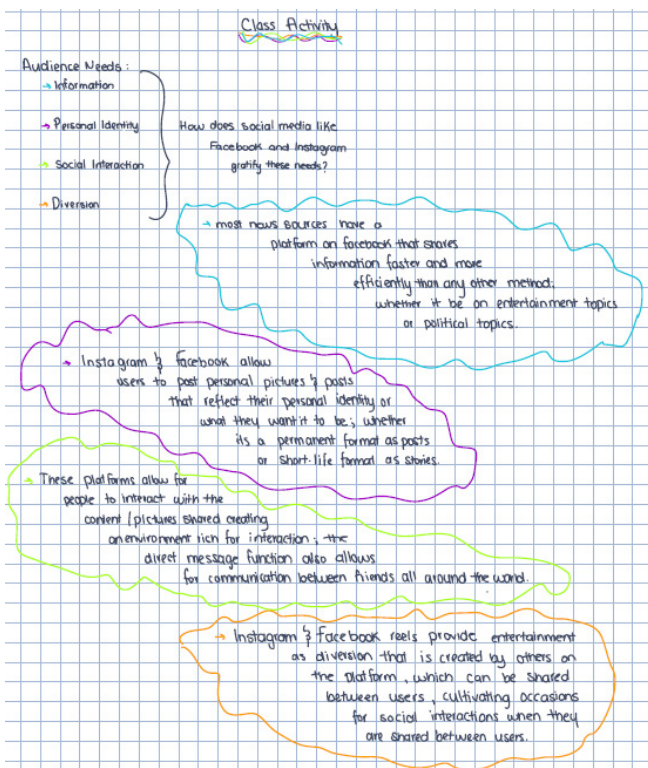 Class Activity
Audience Needs:
→ Information
→ Personal Identity
→ Social Interaction
→ Diversion
How does social media like
Facebook and Instagram
gratify these needs?
→ most news sources have a
platform on facebook that shares
information faster and more
efficiently than any other method;
whether it be on entertainment topics
or political topics.
→ Instagram & facebook allow
users to post personal pictures & posts
that reflect their personal identity or
what they want it to be; whether
its a permanent format as posts
or short-life format as stories.
→ These platforms allow for
people to interact with the
content/pictures shared creating
an environment rich for interaction; the
direct message function also allows
for communication between friends all around the world.
→ Instagram & facebook reels provide entertainment
as diversion that is created by others on
the platform, which can be shared
between users, cultivating occasions
for social interactions when they
are shared between users.